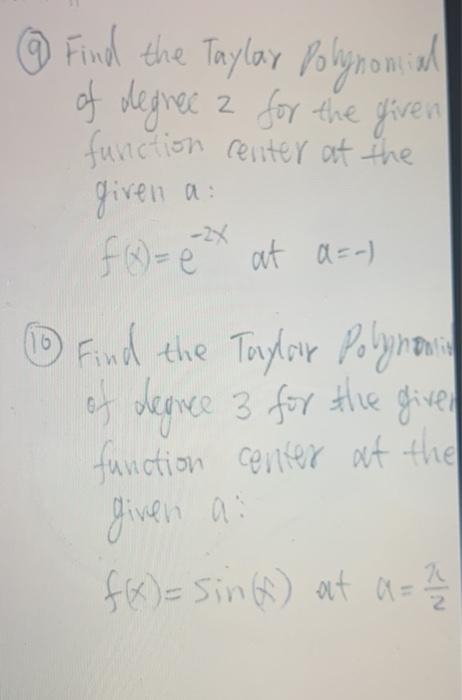 ⑨ Find the Taylar Polynomial
of degree 2 for the given
function center at the
given a:
f(x)=e^{-2x} at a=-1
⑩ Find the Taylor Polynomi
of degree 3 for the given
function center at the
given a:
f(x)=sin(x) at a=π/2